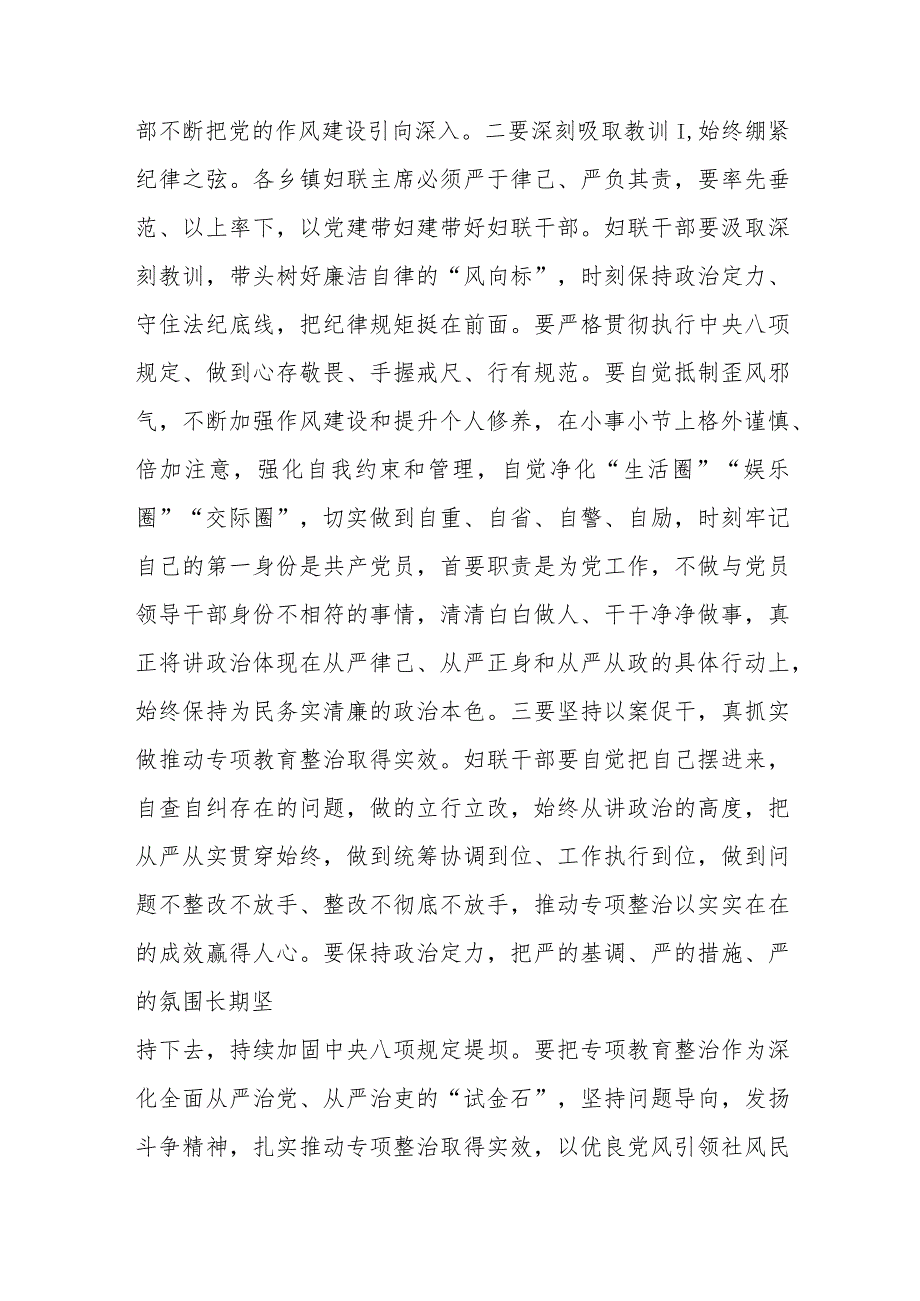 部不断把党的作风建设引向深入。二要深刻吸取教训I,始终绷紧
纪律之弦。各乡镇妇联主席必须严于律己、严负其责，要率先垂
范、以上率下，以党建带妇建带好妇联干部。妇联干部要汲取深
刻教训，带头树好廉洁自律的“风向标”，时刻保持政治定力、
守住法纪底线，把纪律规矩挺在前面。要严格贯彻执行中央八项
规定、做到心存敬畏、手握戒尺、行有规范。要自觉抵制歪风邪
气，不断加强作风建设和提升个人修养，在小事小节上格外谨慎、
倍加注意，强化自我约束和管理，自觉净化“生活圈”“娱乐
圈”“交际圈”，切实做到自重、自省、自警、自励，时刻牢记
自己的第一身份是共产党员，首要职责是为党工作，不做与党员
领导干部身份不相符的事情，清清白白做人、干干净净做事，真
正将讲政治体现在从严律己、从严正身和从严从政的具体行动上，
始终保持为民务实清廉的政治本色。三要坚持以案促干，真抓实
做推动专项教育整治取得实效。妇联干部要自觉把自己摆进来，
自查自纠存在的问题，做的立行立改，始终从讲政治的高度，把
从严从实贯穿始终，做到统筹协调到位、工作执行到位，做到问
题不整改不放手、整改不彻底不放手，推动专项整治以实实在在
的成效赢得人心。要保持政治定力，把严的基调、严的措施、严
的氛围长期坚
持下去，持续加固中央八项规定堤坝。要把专项教育整治作为深
化全面从严治党、从严治吏的“试金石”，坚持问题导向，发扬
斗争精神，扎实推动专项整治取得实效，以优良党风引领社风民